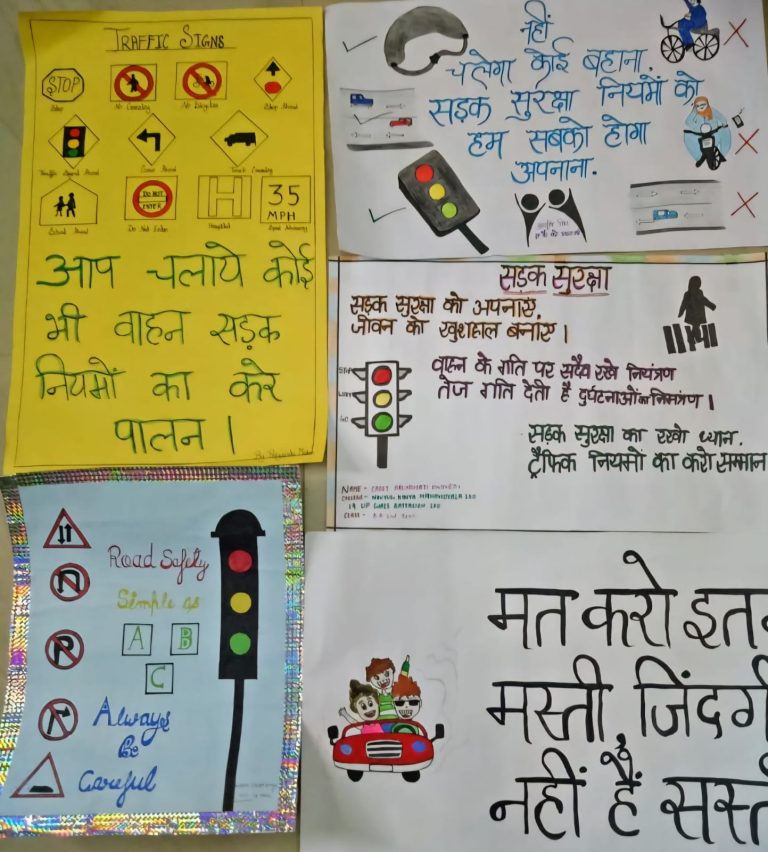 TRAFFIC SIGNS
STOP
Stop
No Bicycles
Stop Ahead
Traffic Signal Ahead
Curve Ahead
Truck Crossing
DO NOT
ENTER
H
35
MPH
School Ahead
Do Not Enter
Hospital
आप चलाये कोई
भी वाहन सड़क
नियमों का करे
पालन ।
नहीं
चलेगा कोई बहाना.
सड़क सुरक्षा नियमों को
हम सबको होगा
अपनाना.
सड़क सुरक्षा
सड़क सुरक्षा को अपनाएं
जीवन को खुशहाल बनाएं ।
वाहन के गति पर सदैव रखे नियंत्रण
तेज गति देती है दुर्घटनाओं का निमंत्रण ।
सड़क सुरक्षा का रखो ध्यान.
ट्रैफिक नियमों का करो सम्मान
STOP
GO
NAME - CADET
COLLEGE -
19 UP GIRLS BATTALION LKO
CLASS -
Road Safety
Simple as
A B
C
Always
Be
Careful
P
मत करो इत
मस्ती, जिंदगी
नहीं हैं सस्त